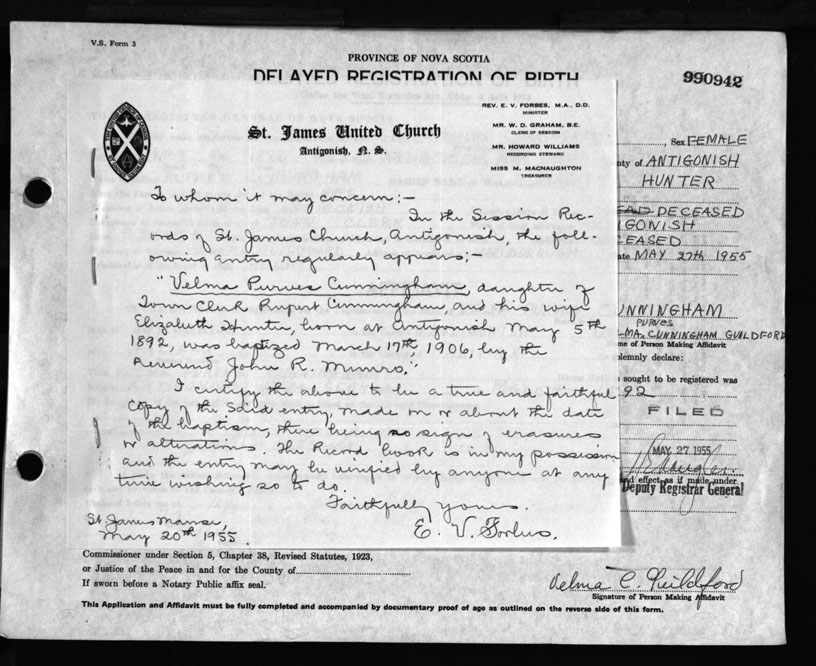 V.S. Form 3
PROVINCE OF NOVA SCOTIA
DELAYED REGISTRATION OF BIRTH
990942
St. James United Church
Antigonish, N. S.
REV. E. V. FORBES, M.A., D.D.
MINISTER
MR. W. D. GRAHAM, B.E.
CLERK OF SESSION
MR. HOWARD WILLIAMS
RECORDING STEWARD
MISS M. MACNAUGHTON
TREASURER
To whom it may concern:-
In the Session Rec-
ords of St. James Church, Antigonish, the foll-
owing entry regularly appears:-
"Velma Purves Cunningham, daughter of
Town Clerk Rupert Cunningham, and his wife
Elizabeth Hunter, born at Antigonish May 5th
1892, was baptized March 17th, 1906, by the
Reverend John R. Munro."
I certify the above to be a true and faithful
copy of the said entry, made on or about the date
of the baptism, there being no sign of erasures
or alterations. The Record book is in my possession
and the entry may be verified by anyone at any
time wishing so to do.
Faithfully yours.
E. V. Forbes.
St James Manse,
May 20th 1955.
, Sex FEMALE
nty of ANTIGONISH
HUNTER
DECEASED
IGONISH
CEASED
ate MAY 27th 1955
UNNINGHAM
PURVES
LMA CUNNINGHAM GUILDFORD
me of Person Making Affidavit
olemnly declare:
sought to be registered was
92
FILED
MAY 27 1955
nd effect as if made under
Deputy Registrar General
Commissioner under Section 5, Chapter 38, Revised Statutes, 1923,
or Justice of the Peace in and for the County of
If sworn before a Notary Public affix seal.
Velma C. Guildford
Signature of Person Making Affidavit
This Application and Affidavit must be fully completed and accompanied by documentary proof of age as outlined on the reverse side of this form.